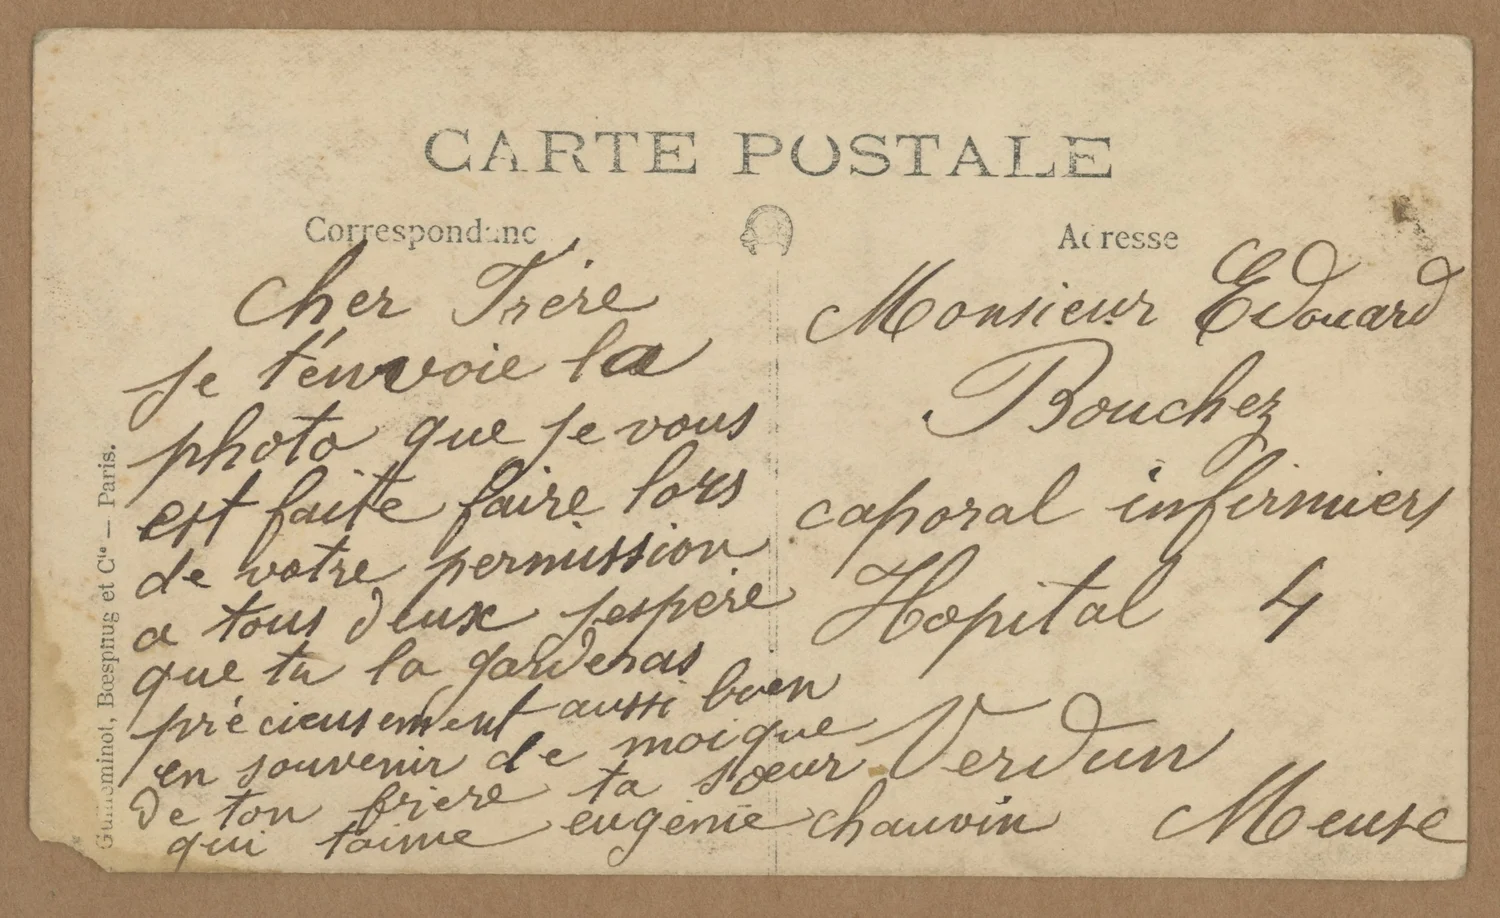 CARTE POSTALE
Correspondanc
Adresse
Cher Frére
je t'envoie la
photo que je vous
est faite faire lors
de votre permission
a tous deux jespére
que tu la garderas
précieusement aussi bien
en souvenir de moi que
de ton frière ta sœur
qui taime eugénie chauvin
Monsieur Edouard
Bouchez
caporal infirmiers
Hopital 4
Verdun
Meuse
Guilleminot, Bœspflug et Cie — Paris.